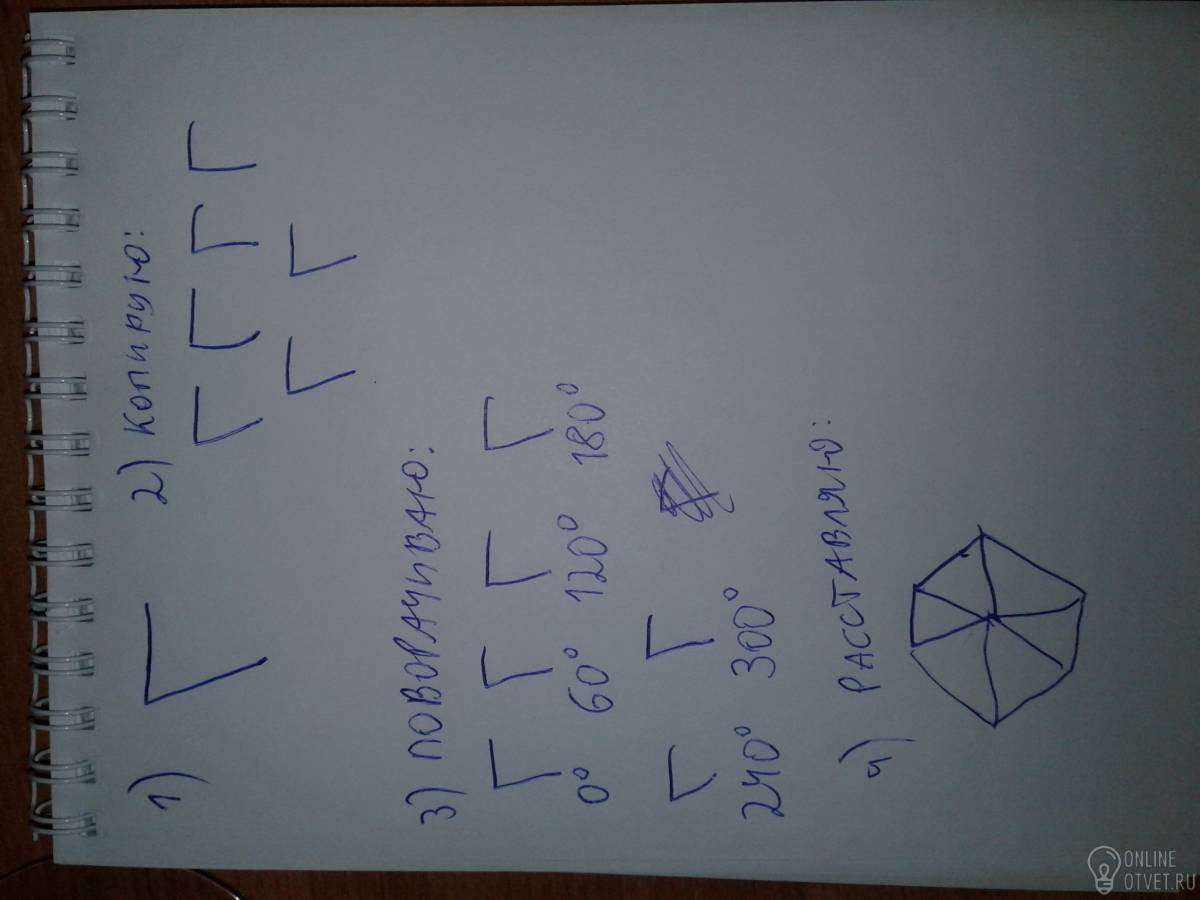 1)
2) Копирую:
3) ПОВОРАЧИВАЮ:
0° 60° 120° 180°
240° 300°
4) РАССТАВЛЯЮ:
ONLINE
OTVET.RU